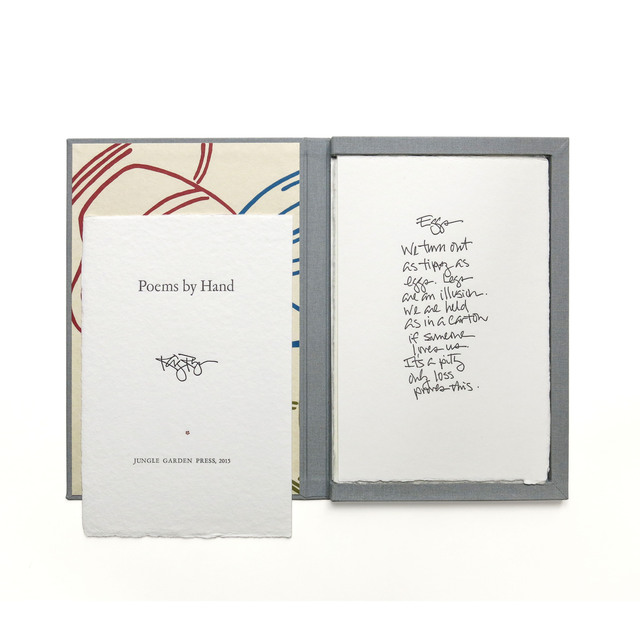 Poems by Hand
JUNGLE GARDEN PRESS, 2015
Eggs
We turn out
as tippy as
eggs. Legs
are an illusion.
We are held
as in a carton
if someone
loves us.
It's a pity
only loss
proves this.